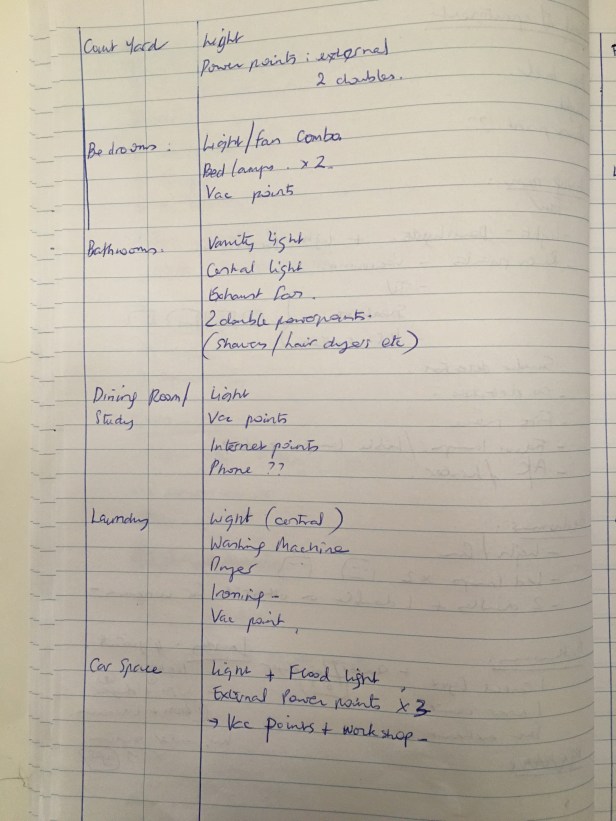 Court Yard
Light
Power points : external
2 doubles.
Bedrooms :
Light/fan Combo
Bed lamps . x 2.
Vac points
Bathrooms.
Vanity light
Central light
Exhaust fan.
2 double powerpoints.
(shavers / hair dryers etc)
Dining Room/
Study
Light
Vac points
Internet points
Phone ??
Laundry
Light (central)
Washing Machine
Dryer
Ironing -
Vac point.
Car Space
Light + Flood light
External Power points x 3
→ Vac points + workshop -